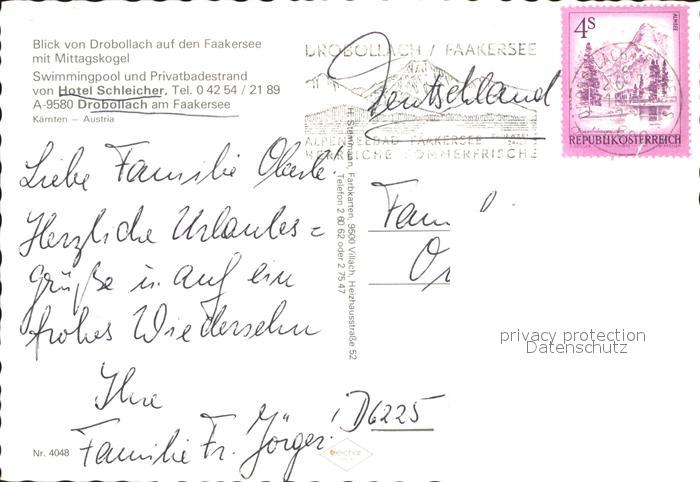 Blick von Drobollach auf den Faakersee
mit Mittagskogel
Swimmingpool und Privatbadestrand
von Hotel Schleicher, Tel. 0 42 54 / 21 89
A-9580 Drobollach am Faakersee
Kärnten — Austria
Liebe Familie Oberle!
Herzliche Urlaubs=
grüße u. auf ein
frohes Wiedersehn
Ihre
Familie Fr. Jörger!
Nr. 4048
Farbkarten, 9500 Villach, Heizhausstraße 52
Telefon 2 60 62 oder 2 75 47
DROBOLLACH / FAAKERSEE
FAAKERSEE
SOMMERFRISCHE
Deutschland
4S
ALMSEE
REPUBLIK ÖSTERREICH
Fam
D6225
privacy protection
Datenschutz